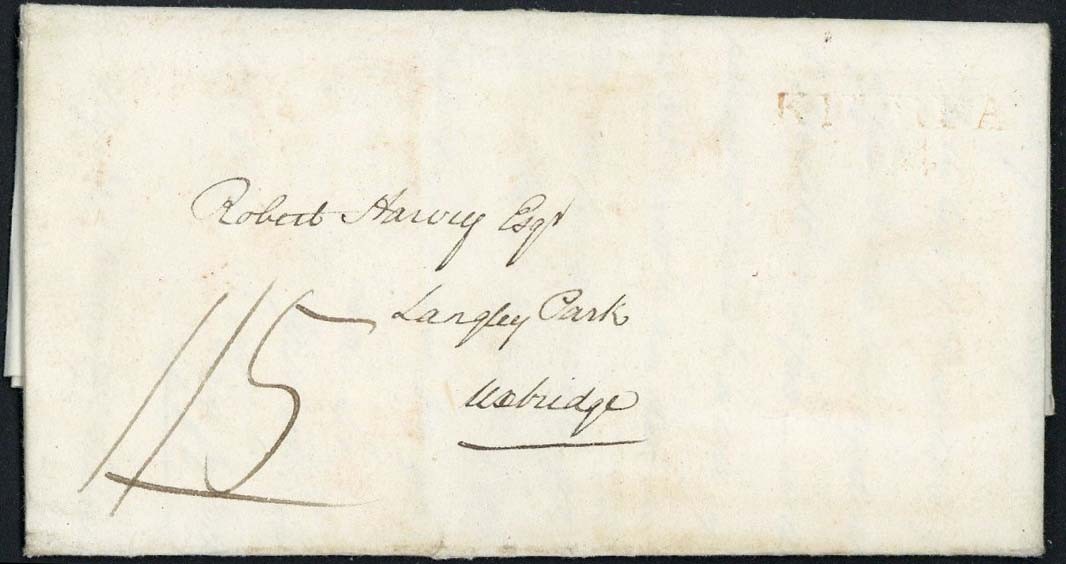 Robert Harvey Esqr
Langley Park
Uxbridge
1/5